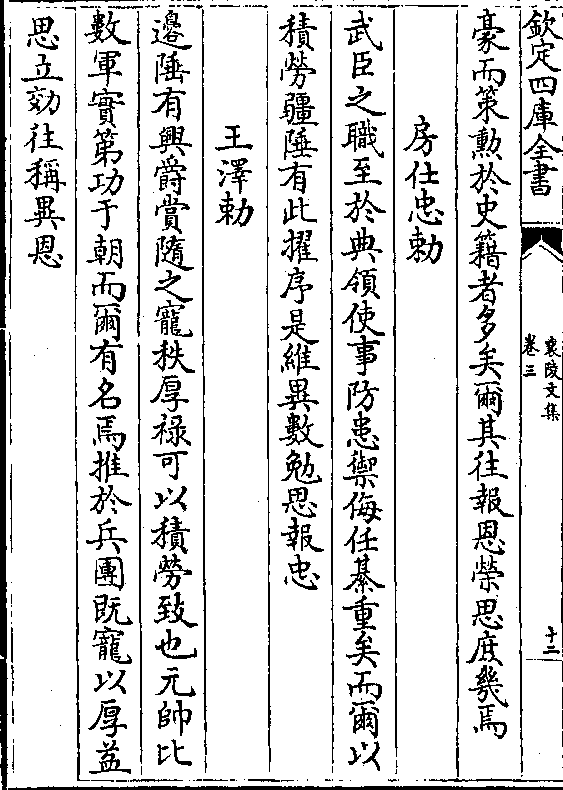 欽定四庫全書
襄陵文集
卷三
十二
豪而策勲於史籍者多矣爾其往報恩榮思庶幾焉
房仕忠勅
武臣之職至於典領使事防患禦侮任綦重矣而爾以
積勞疆陲有此擢序是維異數勉思報忠
王澤勅
邊陲有興爵賞隨之寵秩厚禄可以積勞致也元帥比
數軍實第功于朝而爾有名焉推於兵團既寵以厚益
思立効往稱異恩